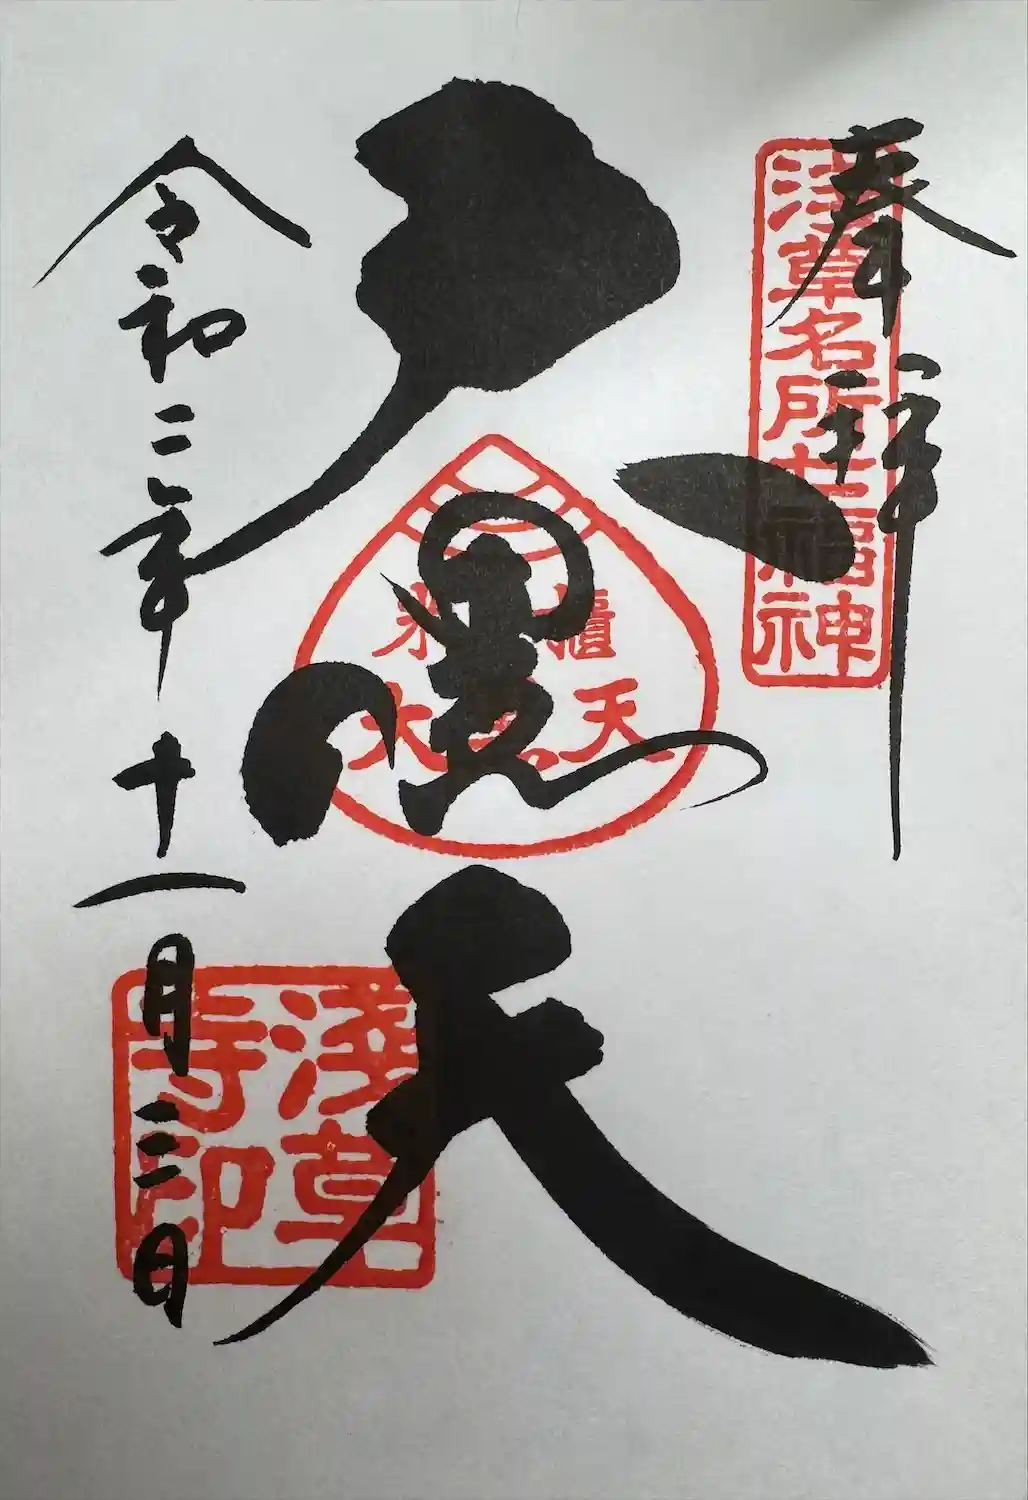 奉拝
浅草名所七福神
大黒天
米櫃
大黒天
令和二年十一月三日
淺草寺印